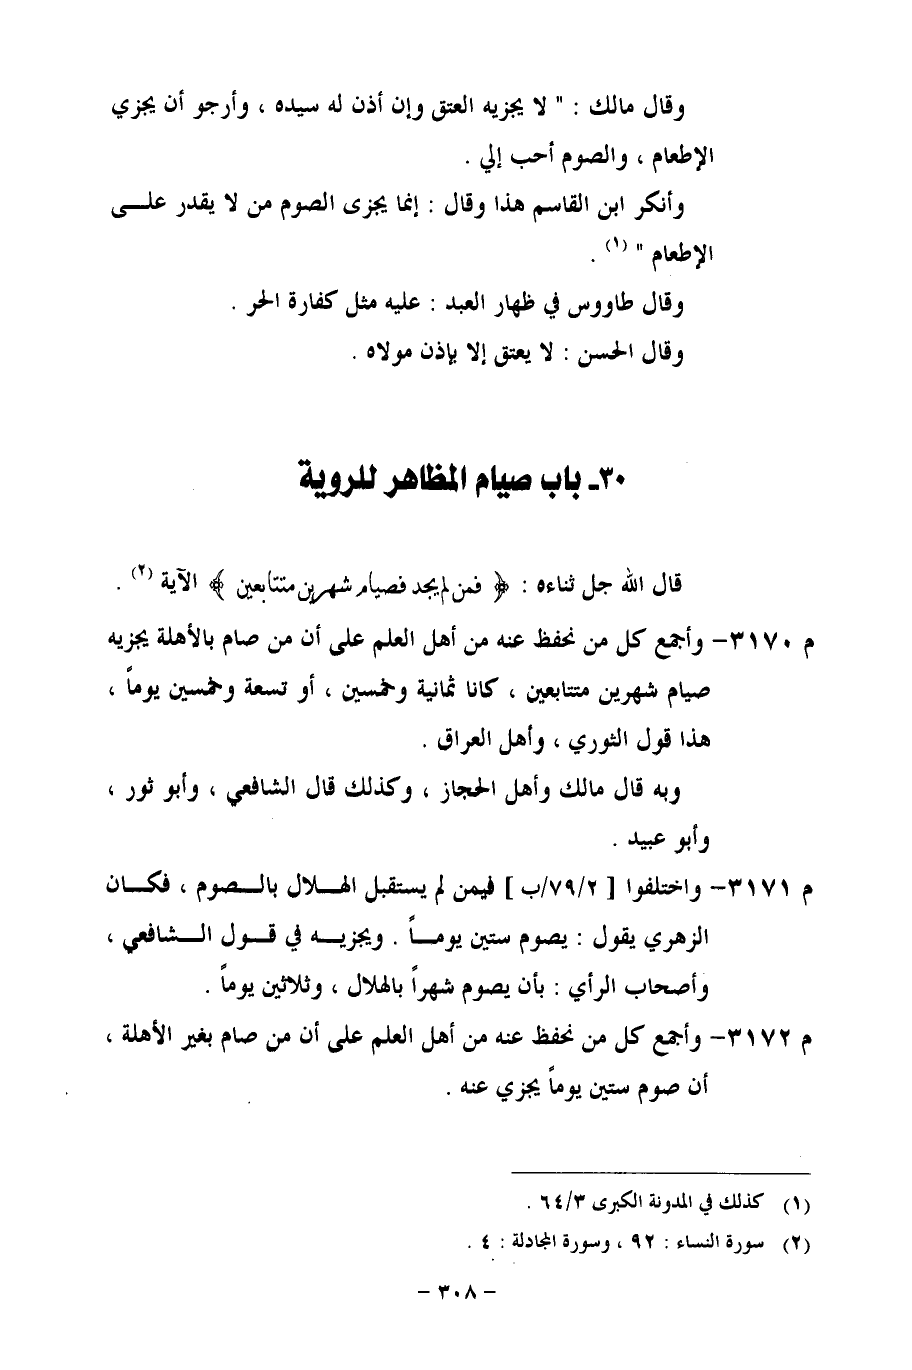 وقال مالك : " لا يجزيه العتق وإن أذن له سيده ، وأرجو أن يجزي
الإطعام ، والصوم أحب إلي .
وأنكر ابن القاسم هذا وقال : إنما يجزى الصوم من لا يقدر علـــى
الإطعام " (١) .
وقال طاووس في ظهار العبد : عليه مثل كفارة الحر .
وقال الحسن : لا يعتق إلا بإذن مولاه .
٣٠- باب صيام المظاهر للروية
قال الله جل ثناءه : ﴿ فمن لم يجد فصيام شهرين متتابعين ﴾ الآية (٢) .
م ٣١٧٠- وأجمع كل من نحفظ عنه من أهل العلم على أن من صام بالأهلة يجزيه
صيام شهرين متتابعين ، كانا ثمانية وخمسين ، أو تسعة وخمسين يوماً ،
هذا قول الثوري ، وأهل العراق .
وبه قال مالك وأهل الحجاز ، وكذلك قال الشافعي ، وأبو ثور ،
وأبو عبيد .
م ٣١٧١- واختلفوا [ ٧٩/٢/ب ] فيمن لم يستقبل الهـــلال بالـــصوم ، فكـــان
الزهري يقول : يصوم ستين يومـــاً . ويجزيـــه في قـــول الـــشافعي ،
وأصحاب الرأي : بأن يصوم شهراً بالهلال ، وثلاثين يوماً .
م ٣١٧٢- وأجمع كل من نحفظ عنه من أهل العلم على أن من صام بغير الأهلة ،
أن صوم ستين يوماً يجزي عنه .
(١) كذلك في المدونة الكبرى ٦٤/٣ .
(٢) سورة النساء : ٩٢ ، وسورة المجادلة : ٤ .
- ٣٠٨ -